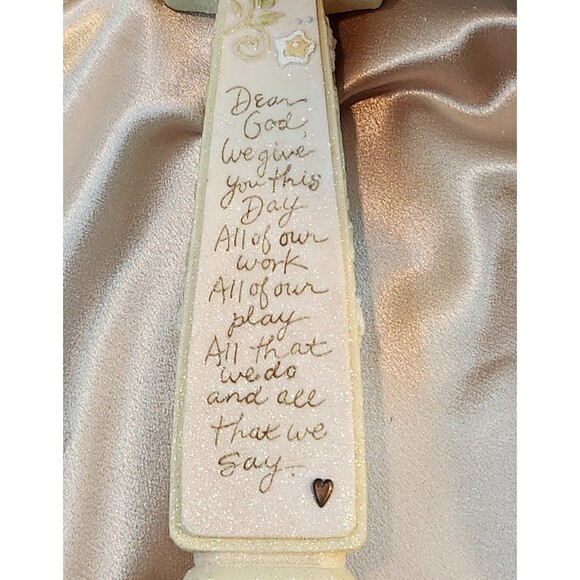 Dear
God,
we give
you this
Day
All of our
work
All of our
play
All that
we do
and all
that we
say.